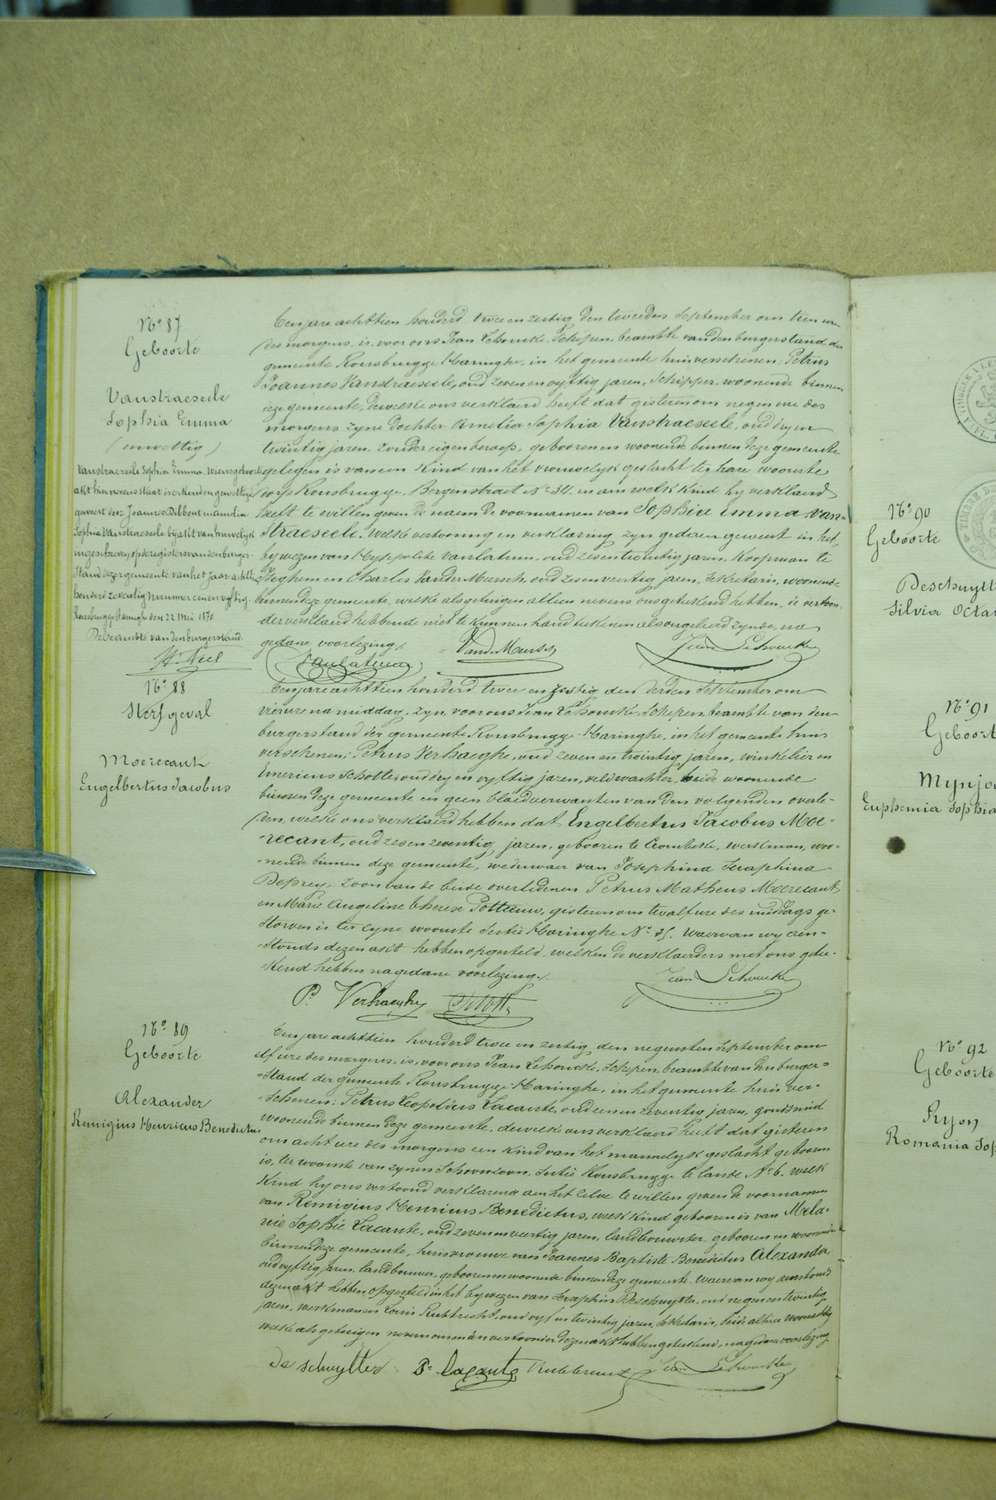 N° 87
Geboorte
Vanstraeseele
Sophia Emma
(onwettig)
Vanstraeseele Sophia Emma, wiens geboorte
akt hiernevens staat is erkend en gewettigd
geweest door Joannes Delbout man den
Sophia Vanstraeseele bij akt van huwelijk
ingeschreven op de registers van den burger
stand dezer gemeente van het jaar achttien
honderd zeventig nummer een en vijftig
Rousbrugge Haringhe den 22 Mei 1870
De beambte van den burgerstand
Een jare achttien honderd twee en zestig den tweeden September om tien ure
des morgens, is voor ons Jean Leboucke Schepen, beambte van den burgerstand der
gemeente Rousbrugge-Haringhe, in het gemeente huis verschenen Petrus
Joannes Vandraeseele, oud zeven en vijftig jaren, Schipper, woonende binnen
deze gemeente, dewelke ons verklaard heeft dat gisteren om negen ure des
morgens zijne dochter Amelia Sophia Vanstraeseele, oud dry en
twintig jaren, zonder eigen beroep, geboren en woonende binnen deze gemeente
gelegen is van een kind van het vrouwelijk geslacht ter hare woonste
wyk Rousbrugge, Bergenstraet N° 34. en aen welk kind hy verklaerd
heeft te willen geven de naem de voornamen van Sophie Emma Van-
straeseele. welke vertooning en verklaring zyn gedaen geweest in het
bywezen van Hyppolite Vanlatum, oud zes en twintig jaren, koopman te
Pieghem en Charles Vander Meersch, oud zes en veertig jaren, Sekretaris, woonende
binnen deze gemeente, welke als getuigen alleen nevens ons geteekend hebben, de vertoon-
der verklaerd hebbende niet te kunnen handteekenen als ongeleerd zynde, na
gedane voorlezing.
Vanlatum
Vander Meersch
N° 88
Sterfgeval
Moerecant
Engelbertus Jacobus
Een jare achttien honderd twee en zestig, den derden September om
vier ure na middag, zyn voor ons Jean Leboucke Schepen, beambte van den
burgerstand der gemeente Rousbrugge-Haringhe, in het gemeente huis
verschenen: Petrus Verhaeghe, oud zeven en twintig jaren, winkelier en
Emericus Scholle, oud dry en vyftig jaren, veldwachter, beide woonende
binnen deze gemeente en geen bloedverwanten van den volgenden overle-
den, welke ons verklaerd hebben dat Engelbertus Jacobus Moe-
recant, oud zes en zeventig jaren, geboren te Crombeke, werkman, woo-
nende binnen deze gemeente, weduwaer van Josephina Seraphina
Deprey, zoon van de beide overledenen Petrus Matheus Moerecant,
en Marie Angeline Therese Potteeuw, gisteren om twaelf ure des middags ge-
storven is ter zyne woonste Sectie Haringhe N° 31. Waervan wy aen-
stonds dezen akt hebben opgesteld, welken de verklaerders met ons getee-
kend hebben na gedane voorlezing.
P. Verhaeghe
N° 89
Geboorte
Alexander
Remigius Henricus Benedictus
Een jare achttien honderd twee en zestig, den negensten September om
elf ure des morgens, is voor ons Jean Leboucke, Schepen, beambte van den burger-
stand der gemeente Rousbrugge-Haringhe, in het gemeente huis ver-
schenen: Petrus Leopoldus Lacante, oud een en zeventig jaren, goudsmid
woonende binnen deze gemeente, dewelke ons verklaerd heeft dat gisteren
om acht ure des morgens een kind van het mannelijk geslacht geboren
is, ter woonste van zynen Schoonzoon, Sectie Rousbrugge te lande N° 6. welk
kind hy ons vertoond verklarende aen het zelve te willen geven de voornamen
van Remigius Henricus Benedictus, welk kind geboren is van Mela-
nie Sophie Lacante, oud zeven en veertig jaren, landbouwster, geboren en woonende
binnen deze gemeente, huisvrouwe van Joannes Baptiste Benedictus Alexander,
oud vyftig jaren, landbouwer, geboren en woonende binnen deze gemeente. Waervan wy aenstonds
dezen akt hebben opgesteld in het bywezen van Seraphin Deschuytter, oud negen en twintig
jaren, werkman en Louis Ruttrecht, oud vyf en twintig jaren, Sekretaris, beide alhier woonachtig
welke als getuigen nevens ons en den vertoonder dezen akt hebben geteekend, na gedane voorlezing
De schuytter
P. Lacante
N° 90
Geboorte
Deschuytt
Silvia Octav
N° 91
Geboort
Mynjo
Euphemia Sophia
N° 92
Geboorte
Ryon
Romania Sop